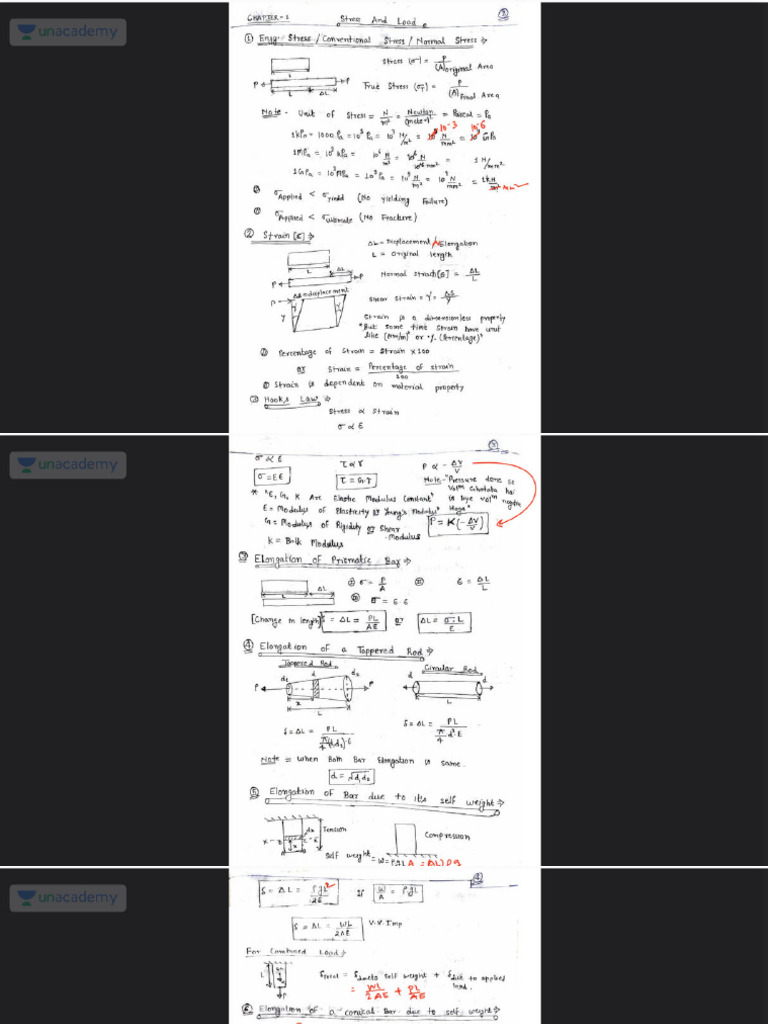 unacademy
CHAPTER-1 Stress And Load
① Engg. Stress / Conventional Stress / Normal Stress ⇒
Stress (σ) = P / (A)original Area
L
P P
L ΔL
True Stress (σT) = P / (A)final Area
Note - Unit of Stress = N/m² = Newton/(meter)² = Pascal = Pa
1 kPa = 1000 Pa = 10³ Pa = 10³ N/m² = 10-3 N/mm² = 10-6 GPa
1 MPa = 10³ kPa = 10⁶ N/m² = 10⁶ N/10⁶ mm² = 1 N/mm²
1 GPa = 10³ MPa = 10⁹ Pa = 10⁹ N/m² = 10³ N/mm² = 1 kN/mm²
σApplied < σyield (No yielding Failure)
σApplied < σultimate (No Fracture)
② Strain [ε] ⇒
ΔL = Displacement / Elongation
L = Original length
L ΔL
P P
Normal Strain [ε] = ΔL/L
ΔS = displacement
Shear Strain = γ = ΔS/y
Strain is a dimensionless property
"But some time strain have unit
like [mm/m] or % (Percentage)"
① Percentage of Strain = Strain × 100
or Strain = Percentage of strain / 100
② Strain is dependent on material property
③ Hook's Law ⇒
Stress ∝ Strain
σ ∝ ε
unacademy
σ ∝ ε τ ∝ γ P ∝ - ΔV/V
σ = Eε τ = Gγ
Note - "Pressure
* "E, G, K Are Elastic Modulus Constant"
E = Modulus of Elasticity or Young's Modulus
G = Modulus of Rigidity or Shear Modulus
P = K(-ΔV/V)
K = Bulk Modulus
③ Elongation of Prismatic Bar ⇒
L ΔL
① σ = P/A ② ε = ΔL/L
③ σ = E·ε
[Change in length] δ = ΔL = PL/AE or ΔL = σ·L/E
④ Elongation of a Tappered Rod ⇒
Tappered Rod Circular Rod
d₁ d d₂ d d
P P
x
L L
δ = ΔL = PL / π/4 (d₁d₂)·E δ = ΔL = PL / π/4 d²·E
Note = When Both Bar Elongation is same.
d = √d₁d₂
⑤ Elongation of Bar due to its self weight ⇒
dx Tension
x x
Compression
Self weight = W = ρgLA
unacademy
δ = ΔL = ρgL²/2E If W/A = ρgL
δ = ΔL = WL/2AE V.V.Imp
For Combined Load ⇒
L
P
δtotal = δdue to self weight + δdue to applied load.
= WL/2AE + PL/AE
⑥ Elongation of a conical Bar due to self weight ⇒